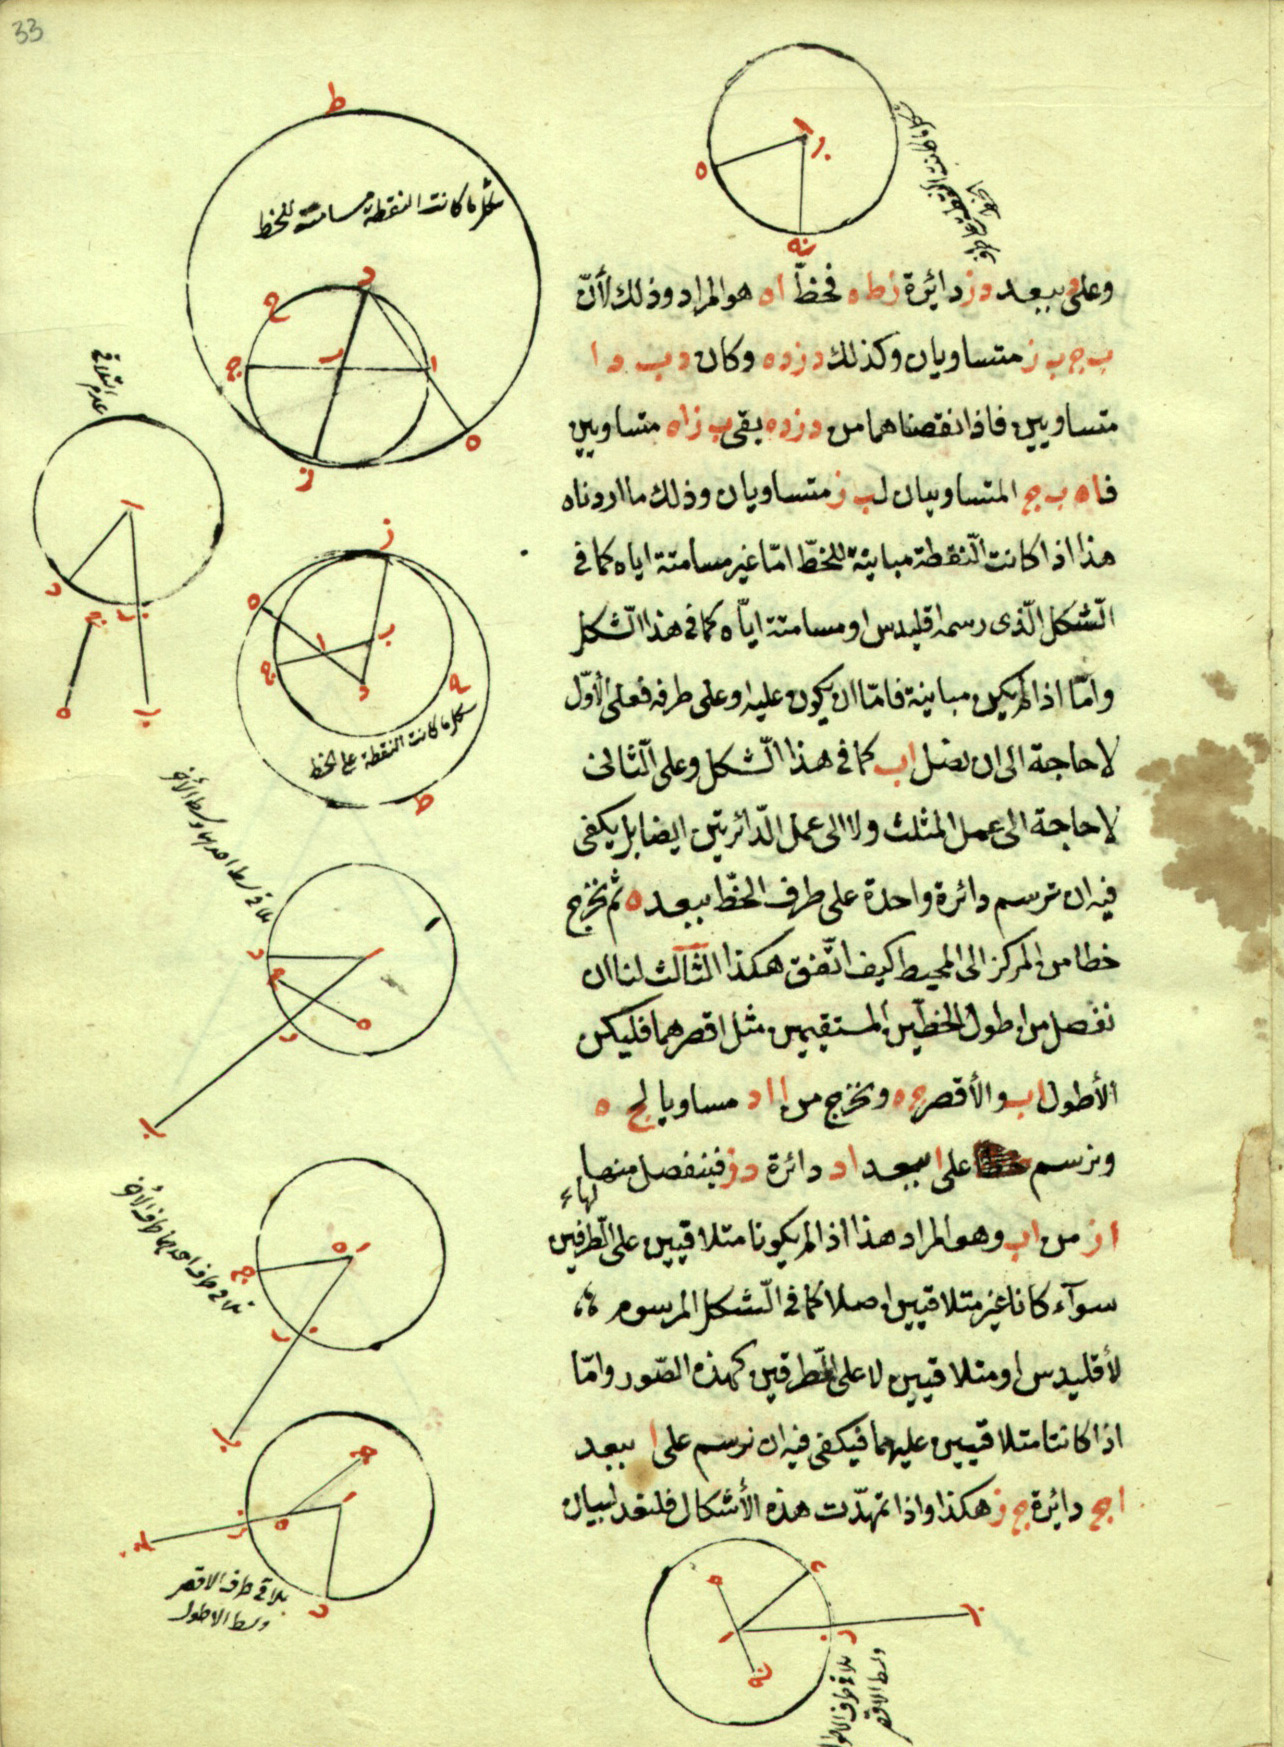 33
وعلى د ببعد د ز دائرة ز ط ه فخطّ ا ه هو المراد وذلك لأنّ
ب ج ب ز متساويان وكذلك د ز د ه وكان د ب د ا
متساويين فاذا نقصناهما من د ز د ه يبقى ب ز ا ه متساويين
فا ه ب ج المتساويان لب ز متساويان وذلك ما اردناه
هذا اذا كانت النّقطة مباينة للخطّ امّا غير مسامتة اياه كما فى
الشّكل الّذى رسمه اقليدس او مسامتة ايّاه كما فى هذا الشّكل
وامّا اذا لم يكن مباينة فامّا ان يكون عليه او على طرفه فعلى الأوّل
لا حاجة الى ان نصل ا ب كما فى هذا الشّكل وعلى الثّانى
لا حاجة الى عمل المثلث ولا الى عمل الدّائرتين ايضا بل يكفى
فيه ان نرسم دائرة واحدة على طرف الخطّ ببعده ثم نخرج
خطا من المركز الى المحيط كيف اتّفق هكذا الثّالث لنا ان
نفصل من اطول الخطّين المستقيمين مثل اقصرهما فليكن
الأطول ا ب والأقصر ج ه ونخرج من ا ا د مساويا لج ه
ونرسم على ا ببعد ا د دائرة د ز فينفصل منها
ا ز من ا ب وهو المراد هذا اذا لم يكونا متلاقيين على الطّرفين
سوآء كانا غير متلاقيين اصلا كما فى الشّكل المرسوم
لأقليدس او متلاقيين لا على الطّرفين كهذه الصّور وامّا
اذا كانتا متلاقيين عليهما فيكفى فيه ان نرسم على ا ببعد
ا ج دائرة ج ز هكذا واذا تمهّدت هذه الأشكال فلنعد لبيان
شكل ما كانت النقطة مسامتة للخط
ط
د
ح
ج
ب
ا
ه
ز
عدم التلاقى
ا
د
ج
ز
ه
ب
ز
ه
ب
ا
ج
د
ح
شكل ما كانت النقطة على الخط
ط
تلاقى وسط احدهما وسط الأخر
ا
د
ج
ه
ز
ب
تلاقى طرف احدهما طرف الأخر
ا ه
ج
ز
ب
ج
ا
ه
ز
ب
د
تلاقى طرف الاقصر
وسط الاطول
ه
د
ا
ز
ب
ج
تلاقى طرف الاطول
وسط الاقصر